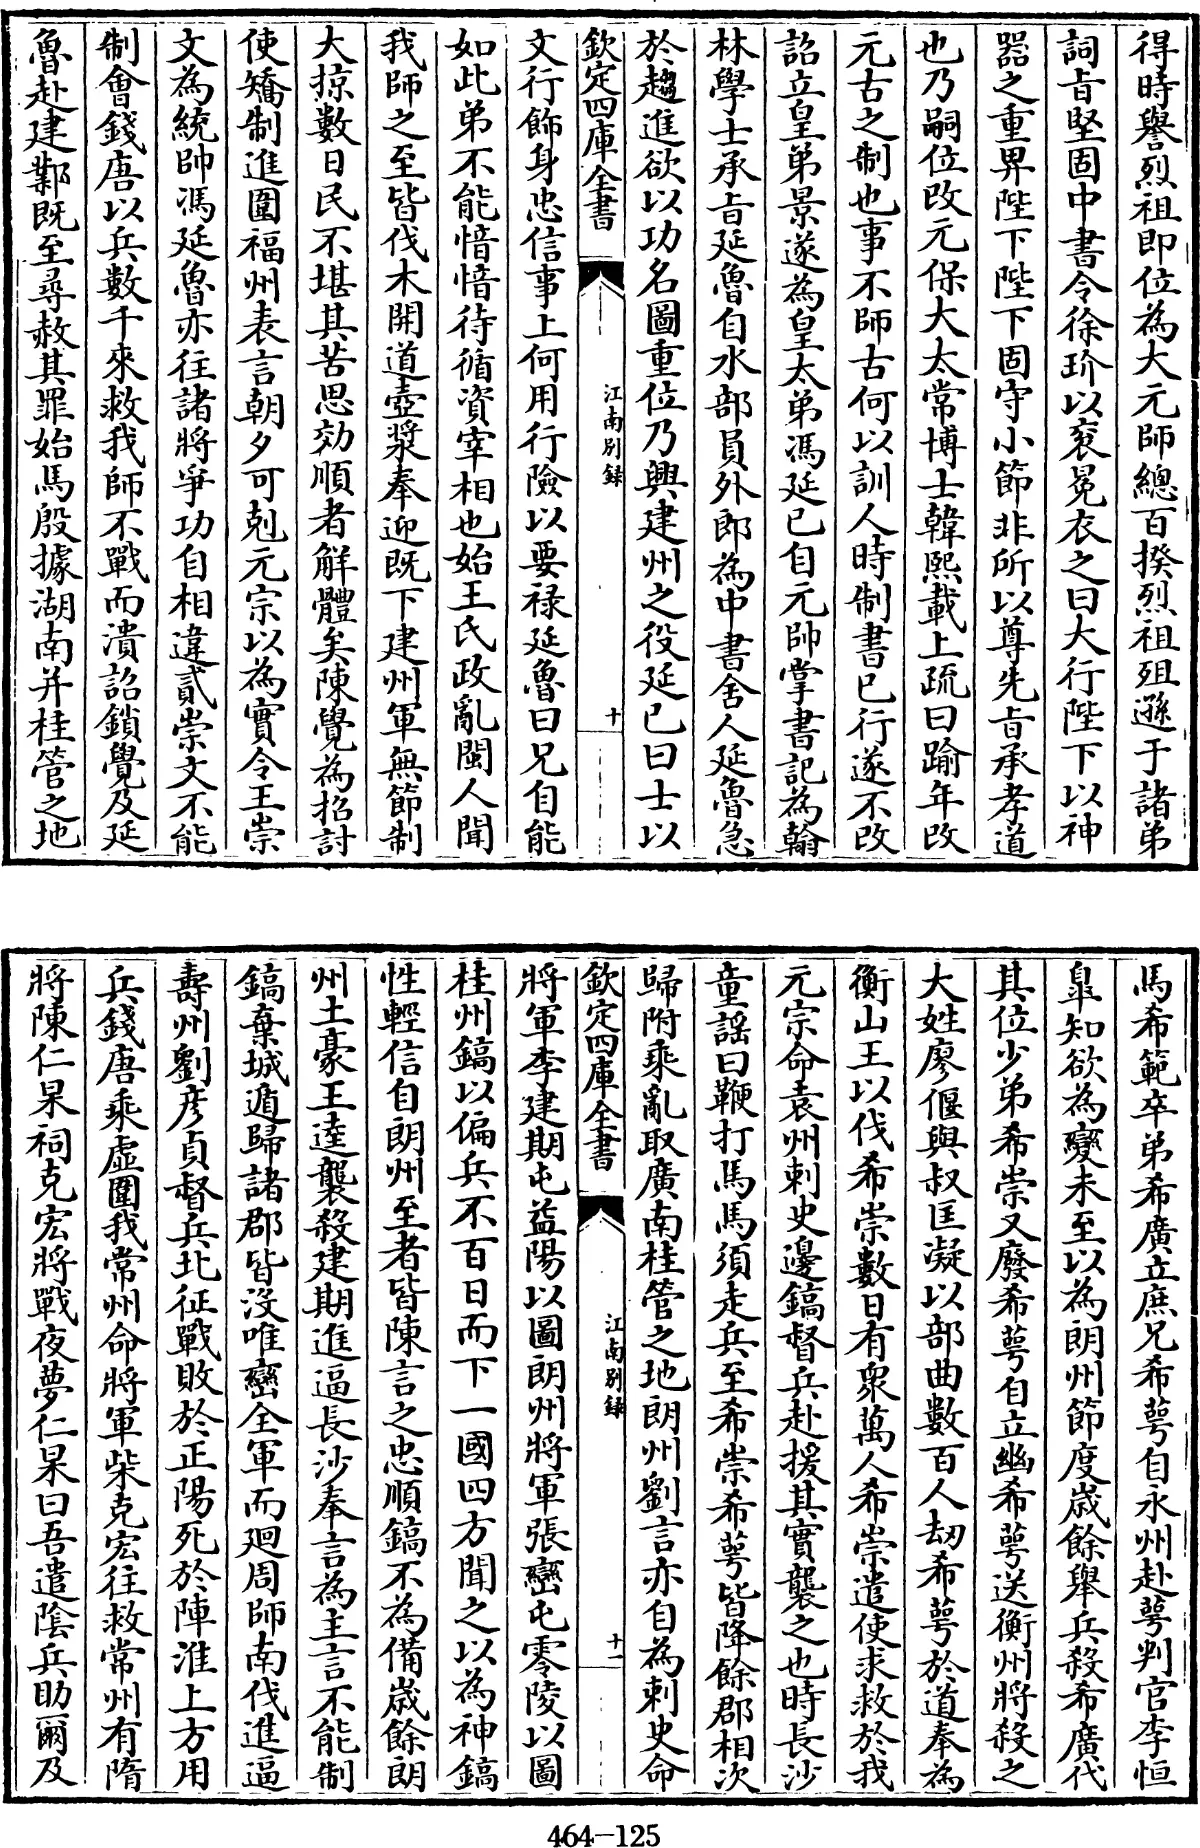 得時譽烈祖即位為大元帥總百揆烈祖殂遜于諸弟
詞旨堅固中書令徐玠以衮冕衣之曰大行陛下以神
器之重畀陛下陛下固守小節非所以尊先旨承孝道
也乃嗣位改元保大太常博士韓熙載上疏曰踰年改
元古之制也事不師古何以訓人時制書已行遂不改
詔立皇弟景遂為皇太弟馮延已自元帥掌書記為翰
林學士承旨延魯自水部員外郎為中書舍人延魯急
於趨進欲以功名圖重位乃興建州之役延已曰士以
欽定四庫全書
江南別録
十
文行飾身忠信事上何用行險以要禄延魯曰兄自能
如此弟不能愔愔待循資宰相也始王氏政亂閩人聞
我師之至皆伐木開道壺漿奉迎既下建州軍無節制
大掠數日民不堪其苦思効順者解體矣陳覺為招討
使矯制進圍福州表言朝夕可剋元宗以為實令王崇
文為統帥馮延魯亦往諸將爭功自相違貳崇文不能
制會錢唐以兵數千來救我師不戰而潰詔鎖覺及延
魯赴建鄴既至尋赦其罪始馬殷據湖南并桂管之地
馬希範卒弟希廣立庶兄希蕚自永州赴蕚判官李恒
臯知欲為變未至以為朗州節度歲餘舉兵殺希廣代
其位少弟希崇又廢希蕚自立幽希蕚送衡州將殺之
大姓廖偃與叔匡凝以部曲數百人刼希蕚於道奉為
衡山王以伐希崇數日有衆萬人希崇遣使求救於我
元宗命袁州刺史邊鎬督兵赴援其實襲之也時長沙
童謡曰鞭打馬馬須走兵至希崇希蕚皆降餘郡相次
歸附乘亂取廣南桂管之地朗州劉言亦自為刺史命
欽定四庫全書
江南別録
十一
將軍李建期屯益陽以圖朗州將軍張巒屯零陵以圖
桂州鎬以偏兵不百日而下一國四方聞之以為神鎬
性輕信自朗州至者皆陳言之忠順鎬不為備歲餘朗
州土豪王逵襲殺建期進逼長沙奉言為主言不能制
鎬棄城遁歸諸郡皆沒唯巒全軍而廻周師南伐進逼
壽州劉彦貞督兵北征戰敗於正陽死於陣淮上方用
兵錢唐乘虛圍我常州命將軍柴克宏往救常州有隋
將陳仁杲祠克宏將戰夜夢仁杲曰吾遣陰兵助爾及
464-125